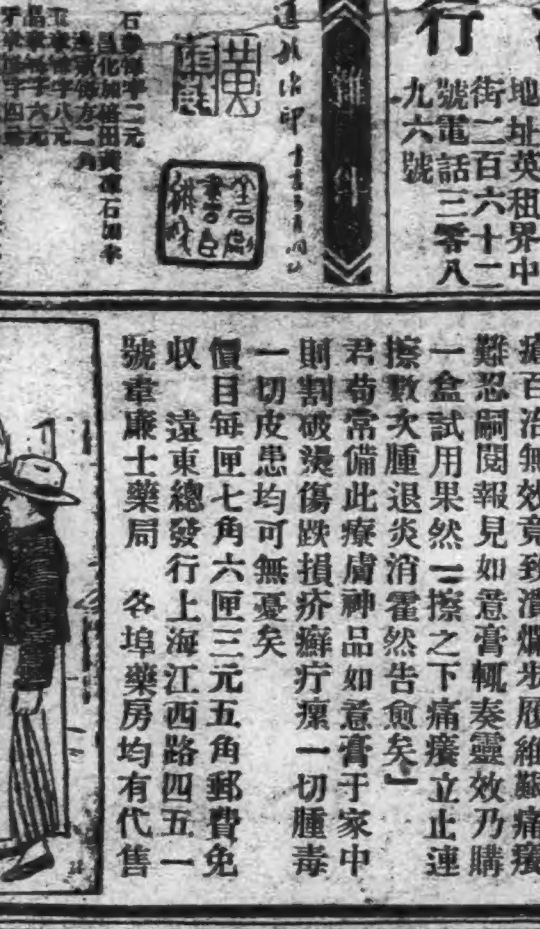 行
地址英租界中
街二百六十二
號電話三零八
九六號
石章每字二元
玉章每字八元
晶章每字六元
瘡百治無效竟到潰爛步履維艱痛癢
難忍嗣閱報見如意膏輒奏靈效乃購
一盒試用果然一擦之下痛癢立止連
擦數次腫退炎消霍然告愈矣』
君苟常備此療膚神品如意膏于家中
則割破燙傷跌損疥癬疔瘰一切腫毒
一切皮患均可無憂矣
價目每匣七角六匣三元五角郵費免
收 遠東總發行上海江西路四五一
號韋廉士藥局 各埠藥房均有代售